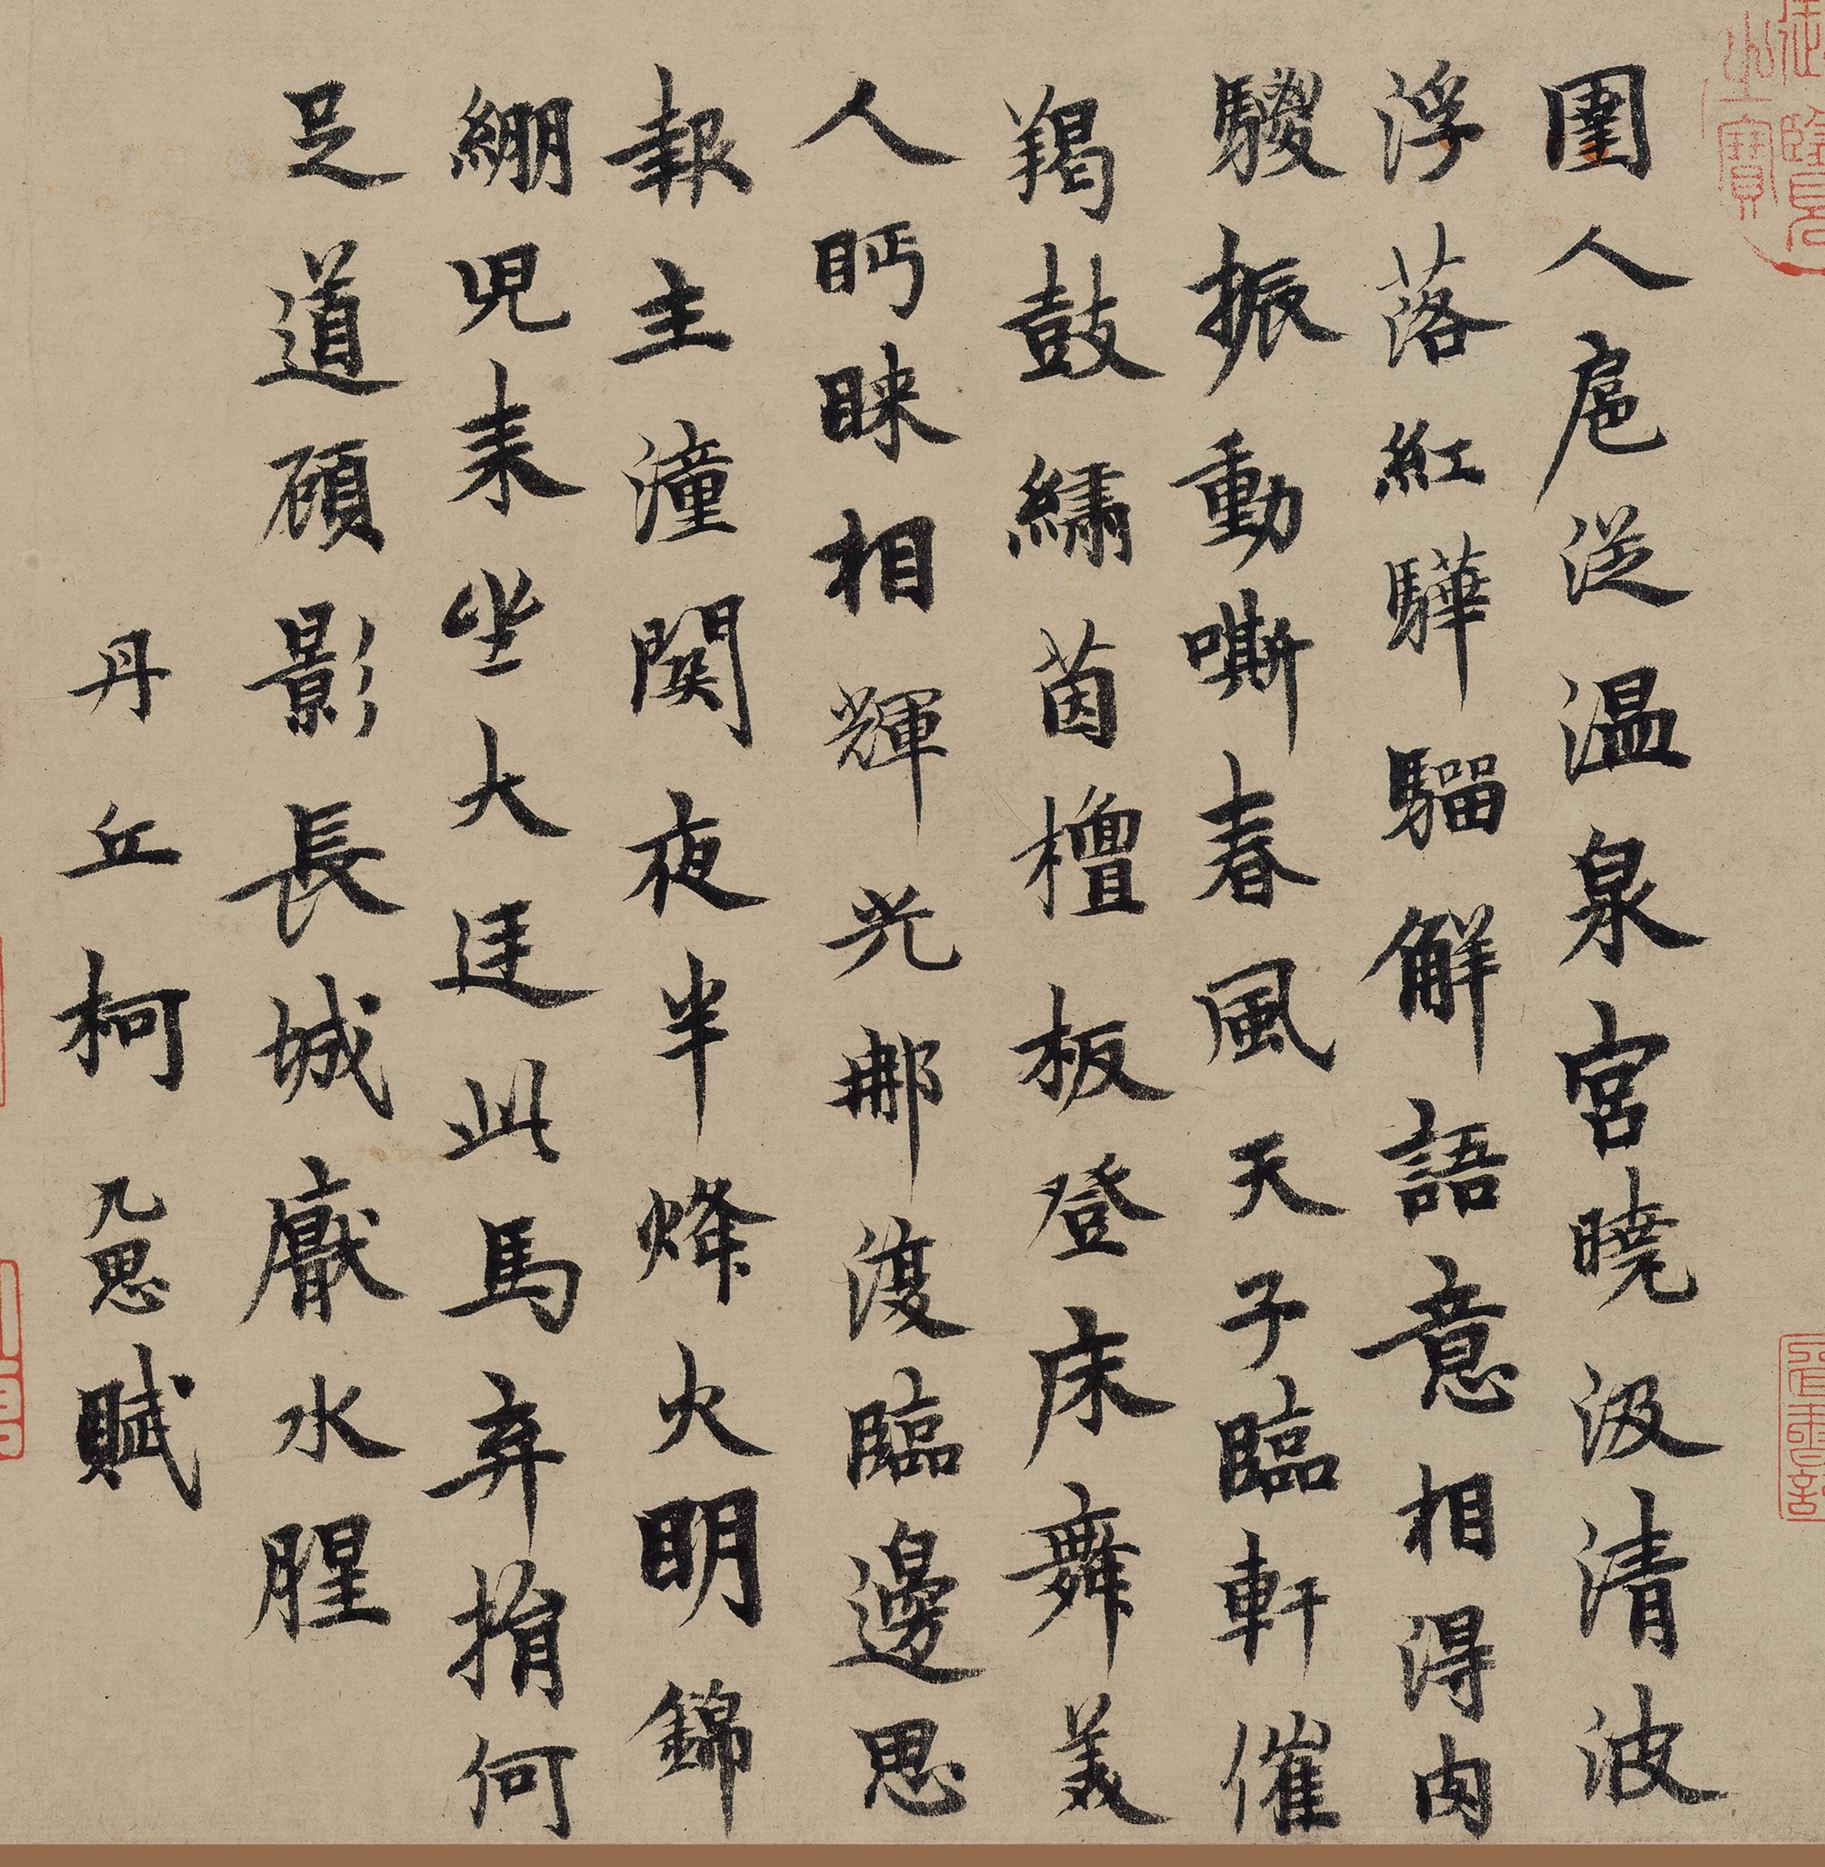 圉人扈從温泉宮曉汲清波
浮落紅驊騮解語意相得肉
騣振動嘶春風天子臨軒催
羯鼓繡茵檀板登床舞美
人眄睞相輝光那復臨邊思
報主潼関夜半烽火明錦
繃兒来坐大廷此馬弃捐何
足道顧影長城厭水腥
丹丘柯九思賦